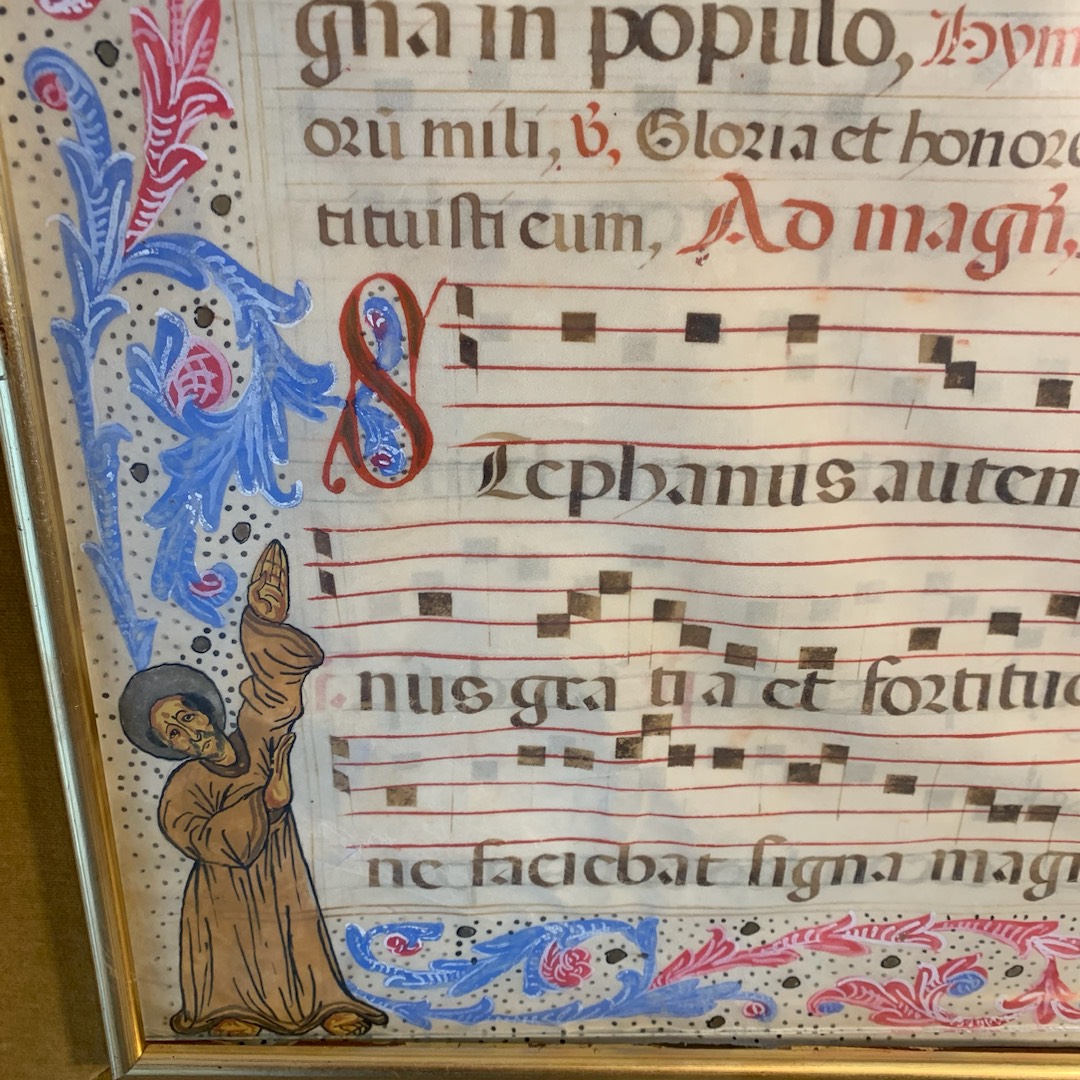 gna in populo, Hym
orū mili, ꝟ, Gloria et honore
tituisti eum, Ad magń.
Stephanus autem
nus gra ti a et fortitud
ne faciebat signa magn